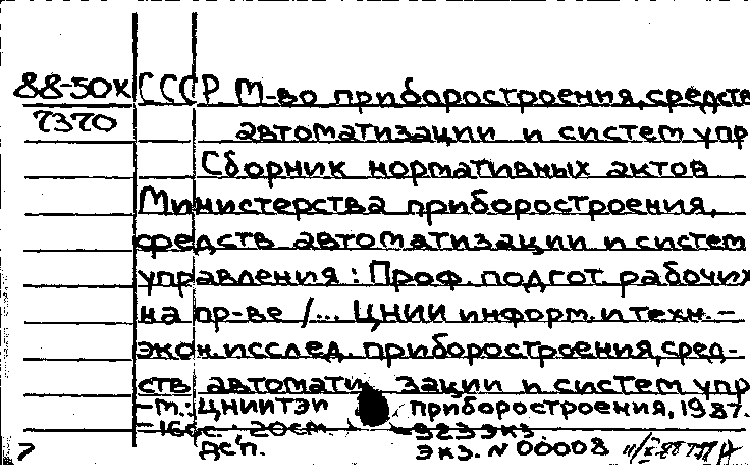 88-50К СССР М-во приборостроения, средств
7370 автоматизации и систем упр
Сборник нормативных актов
Министерства приборостроения,
средств автоматизации и систем
управления : Проф. подгот. рабочих
на пр-ве /... ЦНИИ информ. и техн.-
экон. исслед. приборостроения, сред-
ств автомати зации и систем упр
-М.: ЦНИИТЭИ приборостроения, 1987.
-166с. 20см. -323 экз.
7 Дсп. экз. N 00008